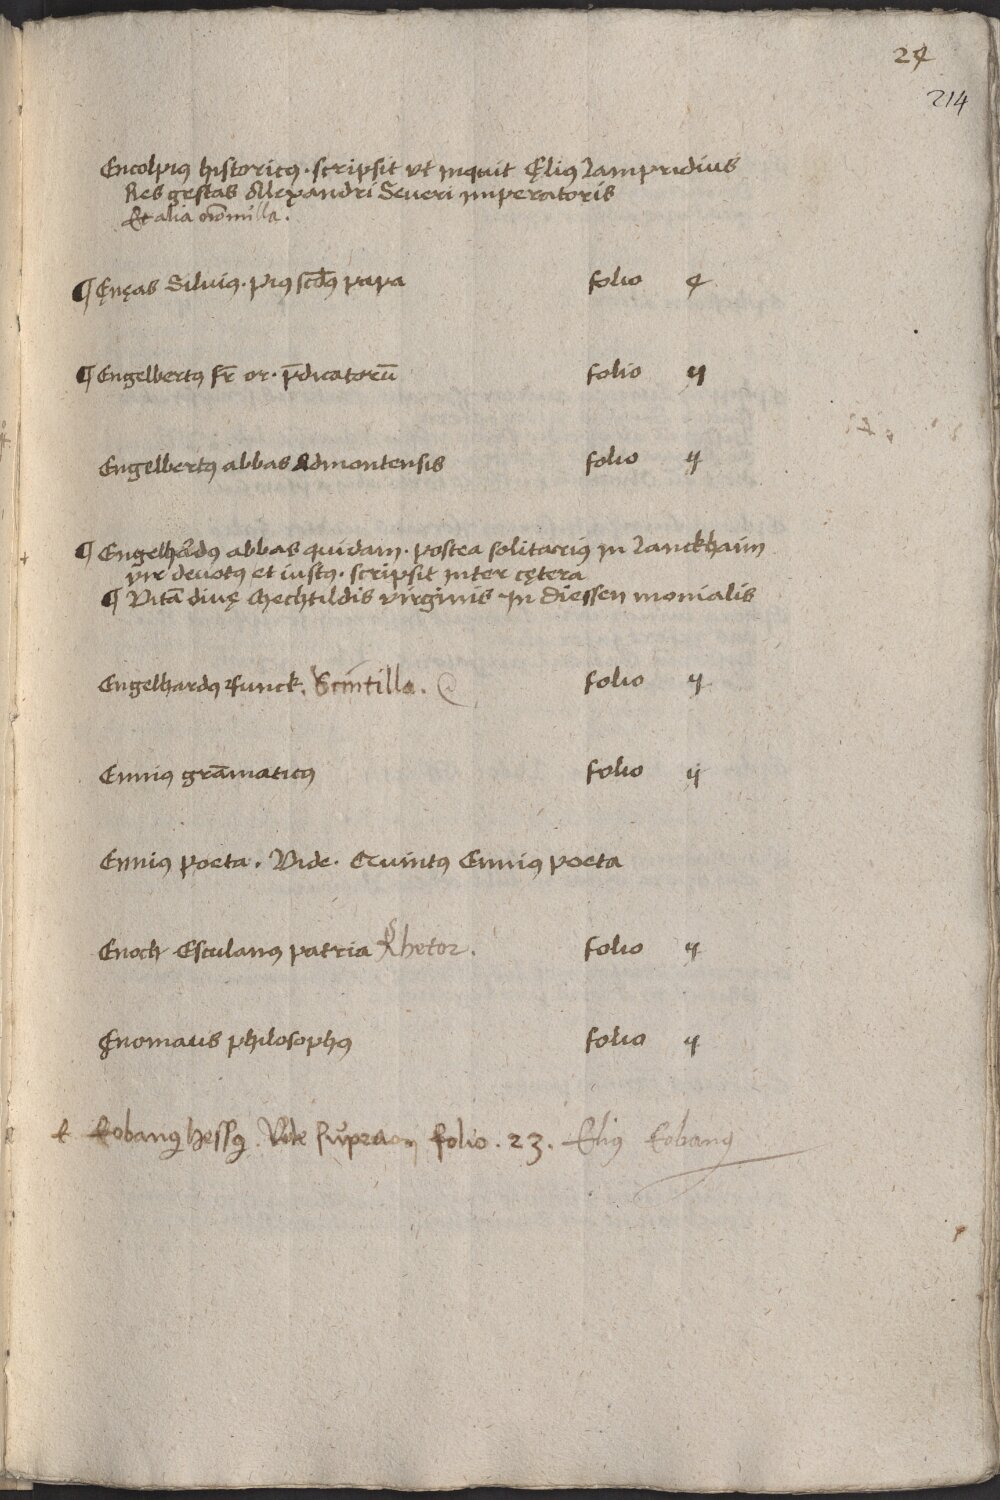 24
214
Encolpiꝰ historicꝰ · scripsit vt inquit Ęliꝰ Lampridius
Res gestas Allexandri Seueri imperatoris
Et alia nōnulla.
¶ Ęnęas Siluiꝰ · piꝰ scd̄ꝰ papa folio 4
¶ Engelbertꝰ fr̄ or · p̄dicatorū folio ij
Engelbertꝰ abbas Admontensis folio ij
¶ Engelhardꝰ abbas quidam · postea solitariꝰ in Lanckhaim
vir deuotꝰ et iustꝰ · scripsit inter cętera
¶ Vitā diuę Mechtildis virginis in Diessen monialis
Engelhardꝰ Funck. Scintilla. folio ij
Enniꝰ grāmaticꝰ folio ij
Enniꝰ poeta. Vide. Quintꝰ Enniꝰ poeta
Enoch Esculanꝰ patria Rhetor. folio ij
Ęnomaus philosophꝰ folio ij
E Eobanꝰ Hessꝰ. Vide supra in folio. 23. Eliꝰ Eobanꝰ